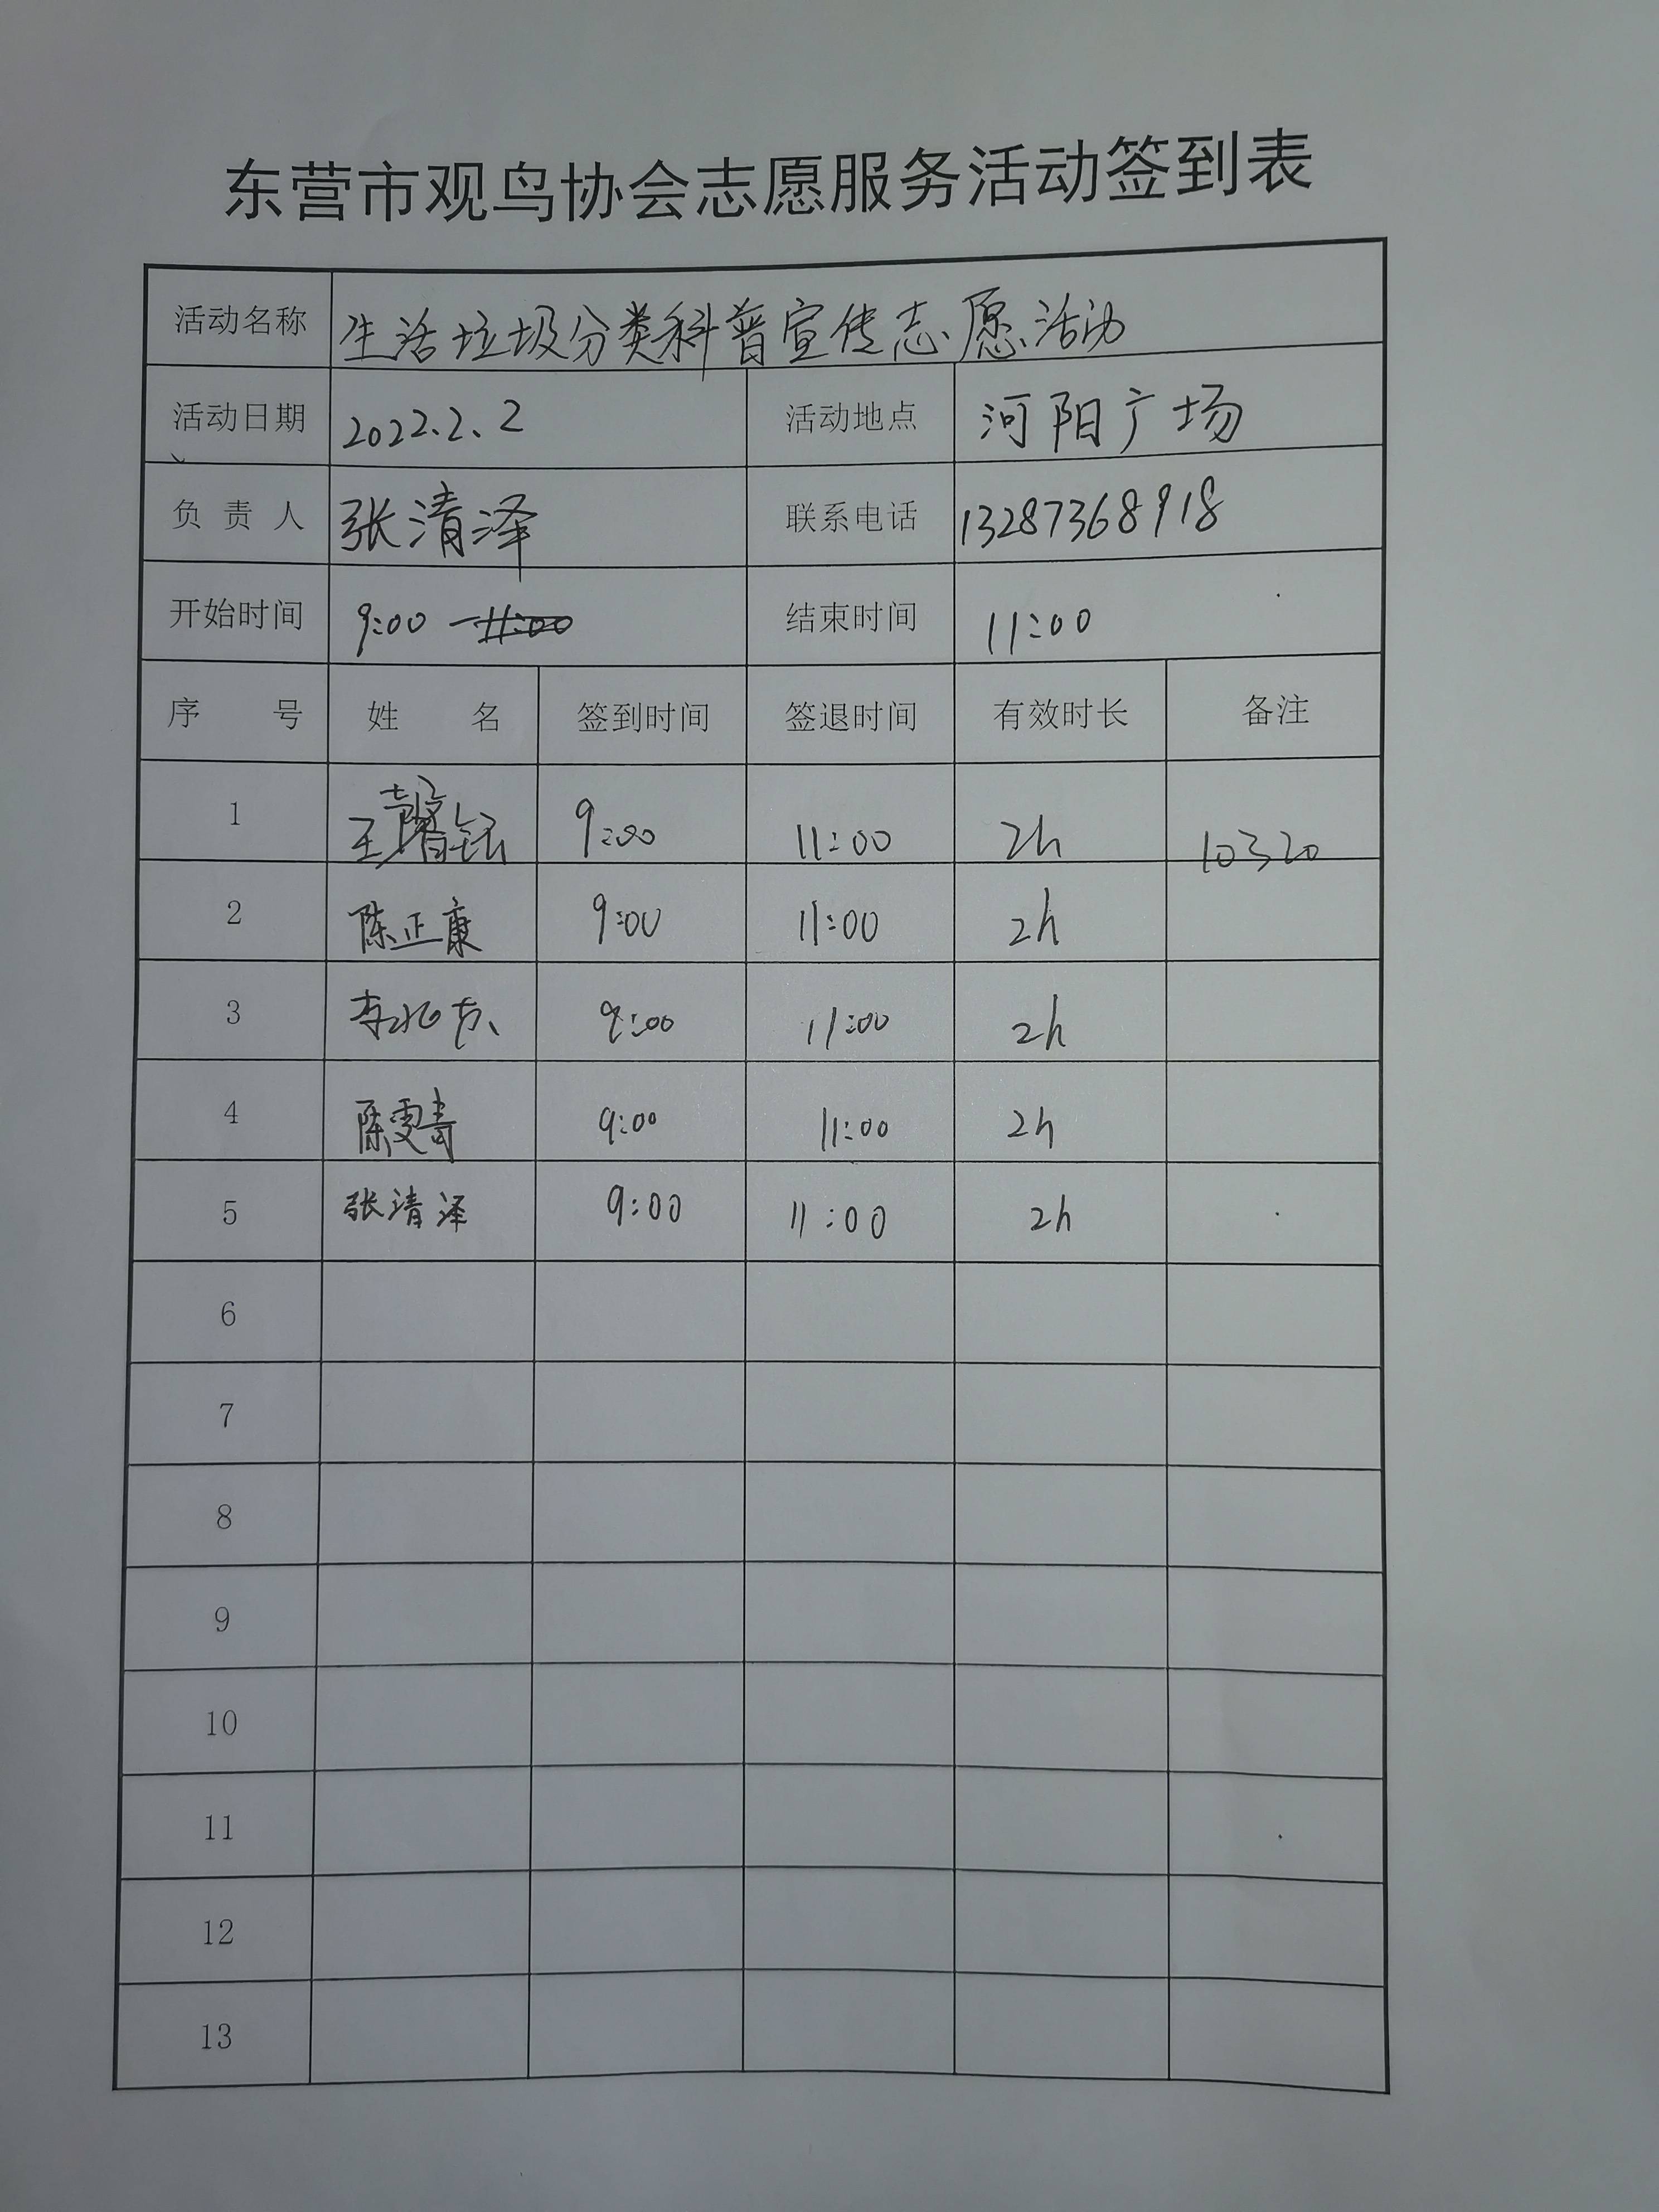 东营市观鸟协会志愿服务活动签到表
活动名称 生活垃圾分类科普宣传志愿活动
活动日期 2022.2.2 活动地点 河阳广场
负责人 张清泽 联系电话 13287368918
开始时间 9:00 结束时间 11:00
序号 姓名 签到时间 签退时间 有效时长 备注
1 王馨钰 9:00 11:00 2h 10320
2 陈正康 9:00 11:00 2h
3 9:00 11:00 2h
4 陈雯 9:00 11:00 2h
5 张清泽 9:00 11:00 2h
6
7
8
9
10
11
12
13